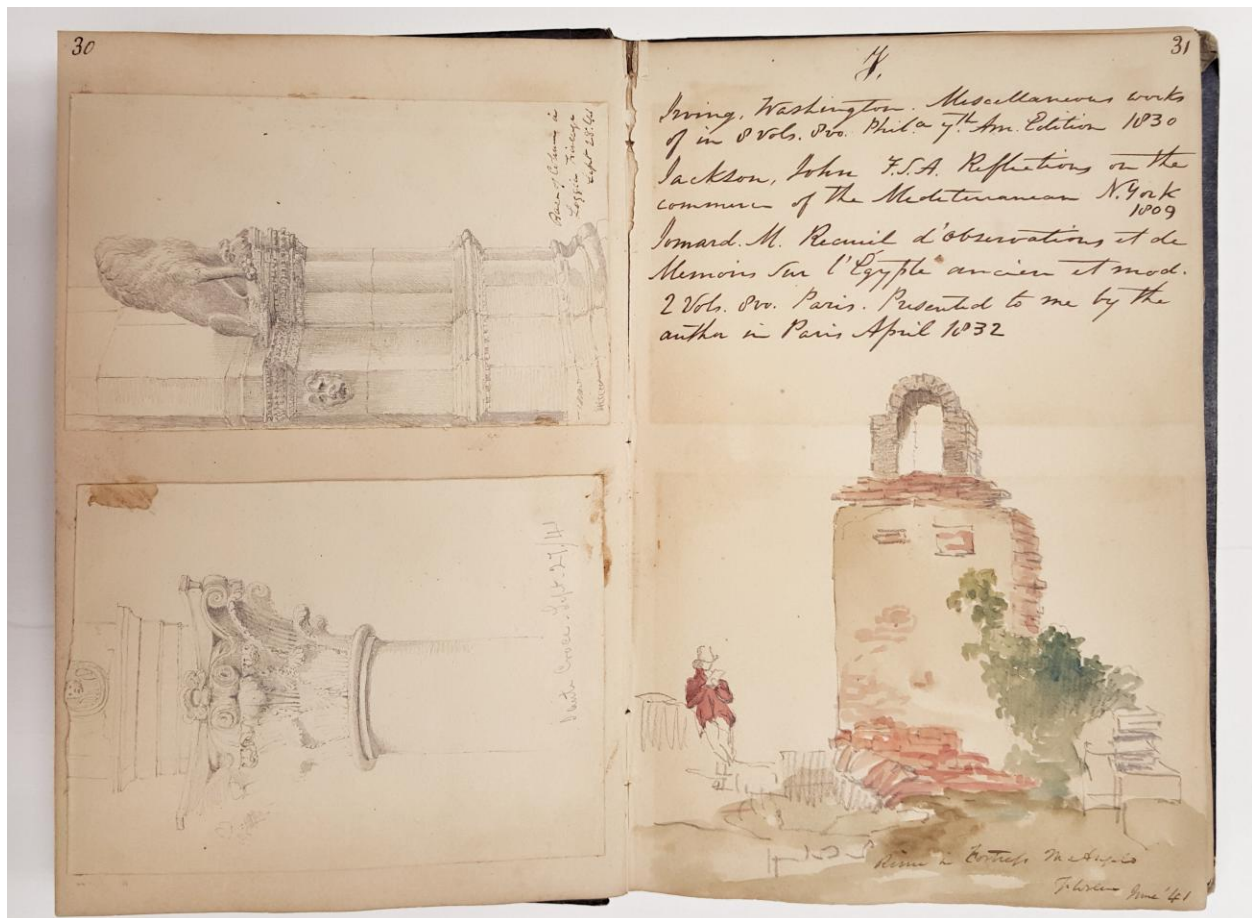 30
Base of Column in
Loggia
Sept 28. 41
Santa Croce. Sept. 27/41
31
Irving, Washington. Miscellaneous works
of in 8 vols. 8vo. Phila. 7th Am. Edition 1830
Jackson, John F.S.A. Reflections on the
commerce of the Mediterranean N. York
1809
Jomard. M. Recueil d'observations et de
Memoirs sur l'Égypte ancien et mod.
2 Vols. 8vo. Paris. Presented to me by the
author in Paris April 1832
in Fortress
June '41